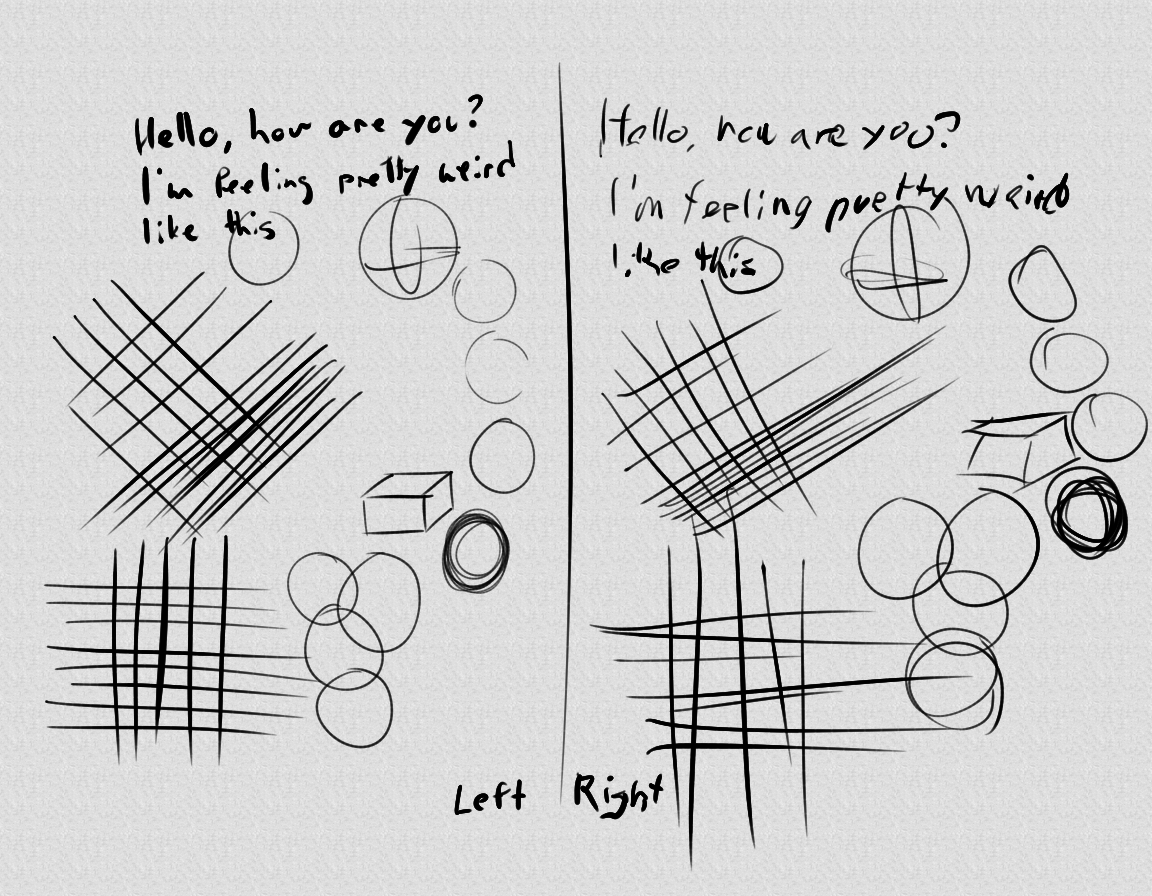 Hello, how are you?
I'm feeling pretty weird
like this
Hello, how are you?
I'm feeling pretty weird
like this
Left
Right